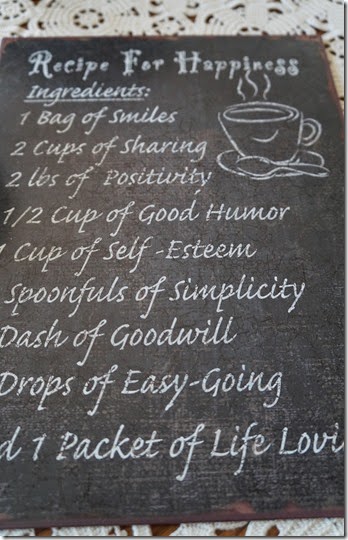 Recipe For Happiness
Ingredients:
1 Bag of Smiles
2 Cups of Sharing
2 lbs of Positivity
1/2 Cup of Good Humor
1 Cup of Self-Esteem
Spoonfuls of Simplicity
Dash of Goodwill
Drops of Easy-Going
d 1 Packet of Life Lovi